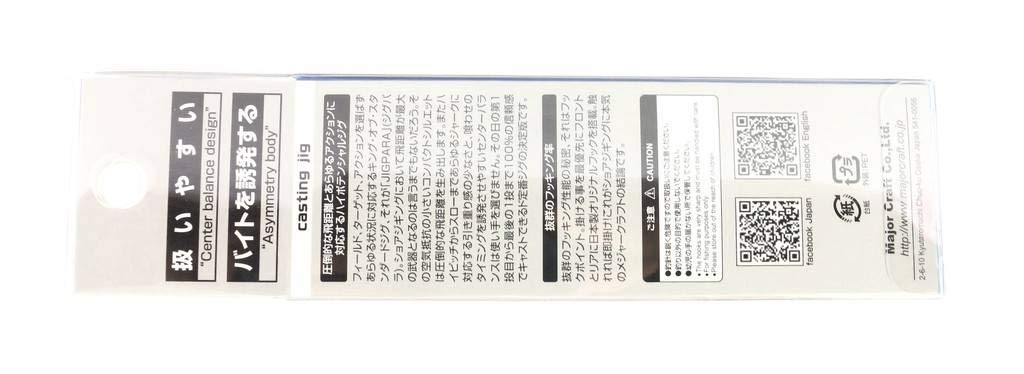 扱いやすい
"Center balance design"
バイトを誘発する
"Asymmetry body"
casting jig
圧倒的な飛距離とあらゆるアクションに
対応するハイポテンシャルジグ
フィールド、ターゲット、アクションを選ばず
あらゆる状況に対応するキング・オブ・スタ
ンダードジグ、それが「JIGPARA」(ジグパ
ラ)。ショアジギングにおいて飛距離が最大
の武器となるのは言うまでもないだろう。そ
の空気抵抗の小さいコンパクトシルエット
は圧倒的な飛距離を生み出します。またハ
イピッチからスローまであらゆるジャークに
対応する引き重り感の少なさと、喰わせの
タイミングを誘発させやすいセンターバラ
ンスは使い手を選びません。その日の第1
投目から最後の1投まで100%の信頼感
でキャストできるド定番ジグの決定版です。
抜群のフッキング率
抜群のフッキング性能の秘密、それはフッ
クポイント。掛ける事を最優先にフロント
とリアに日本製オリジナルフックを搭載。触
れれば即掛け!これがショアジギングに本気
のメジャークラフトの結論です。
ご注意 CAUTION
●釣針は鋭く危険ですので取扱いにご注意ください。
●釣り以外の目的で使用しないでください。
●幼児の手の届かない所で保管してください。
●The hooks are very sharp and must be handled with care.
●For fishing purposes only.
●Please store out of the reach of children.
facebook Japan
facebook English
紙
台紙
プラ
外装:PET
Major Craft Co.,Ltd.
http://www.majorcraft.co.jp
2-6-10 Kyutaromachi Chuo-ku Osaka Japan 541-0056